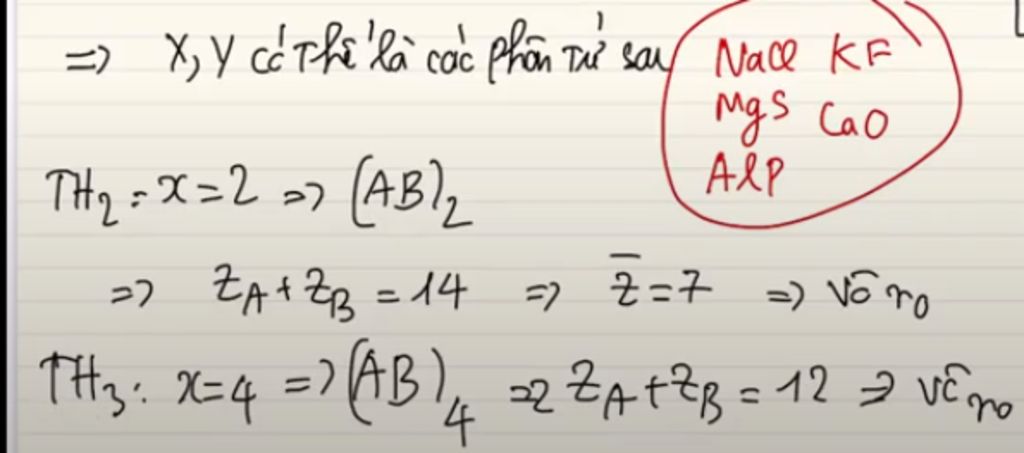 => X, Y có thể là các phân tử sau NaCl KF
MgS CaO
AlP
TH2: x=2 => (AB)2
=> ZA + ZB = 14 => Z̄ = 7 => vô no
TH3: x=4 => (AB)4 => ZA + ZB = 12 => vô no